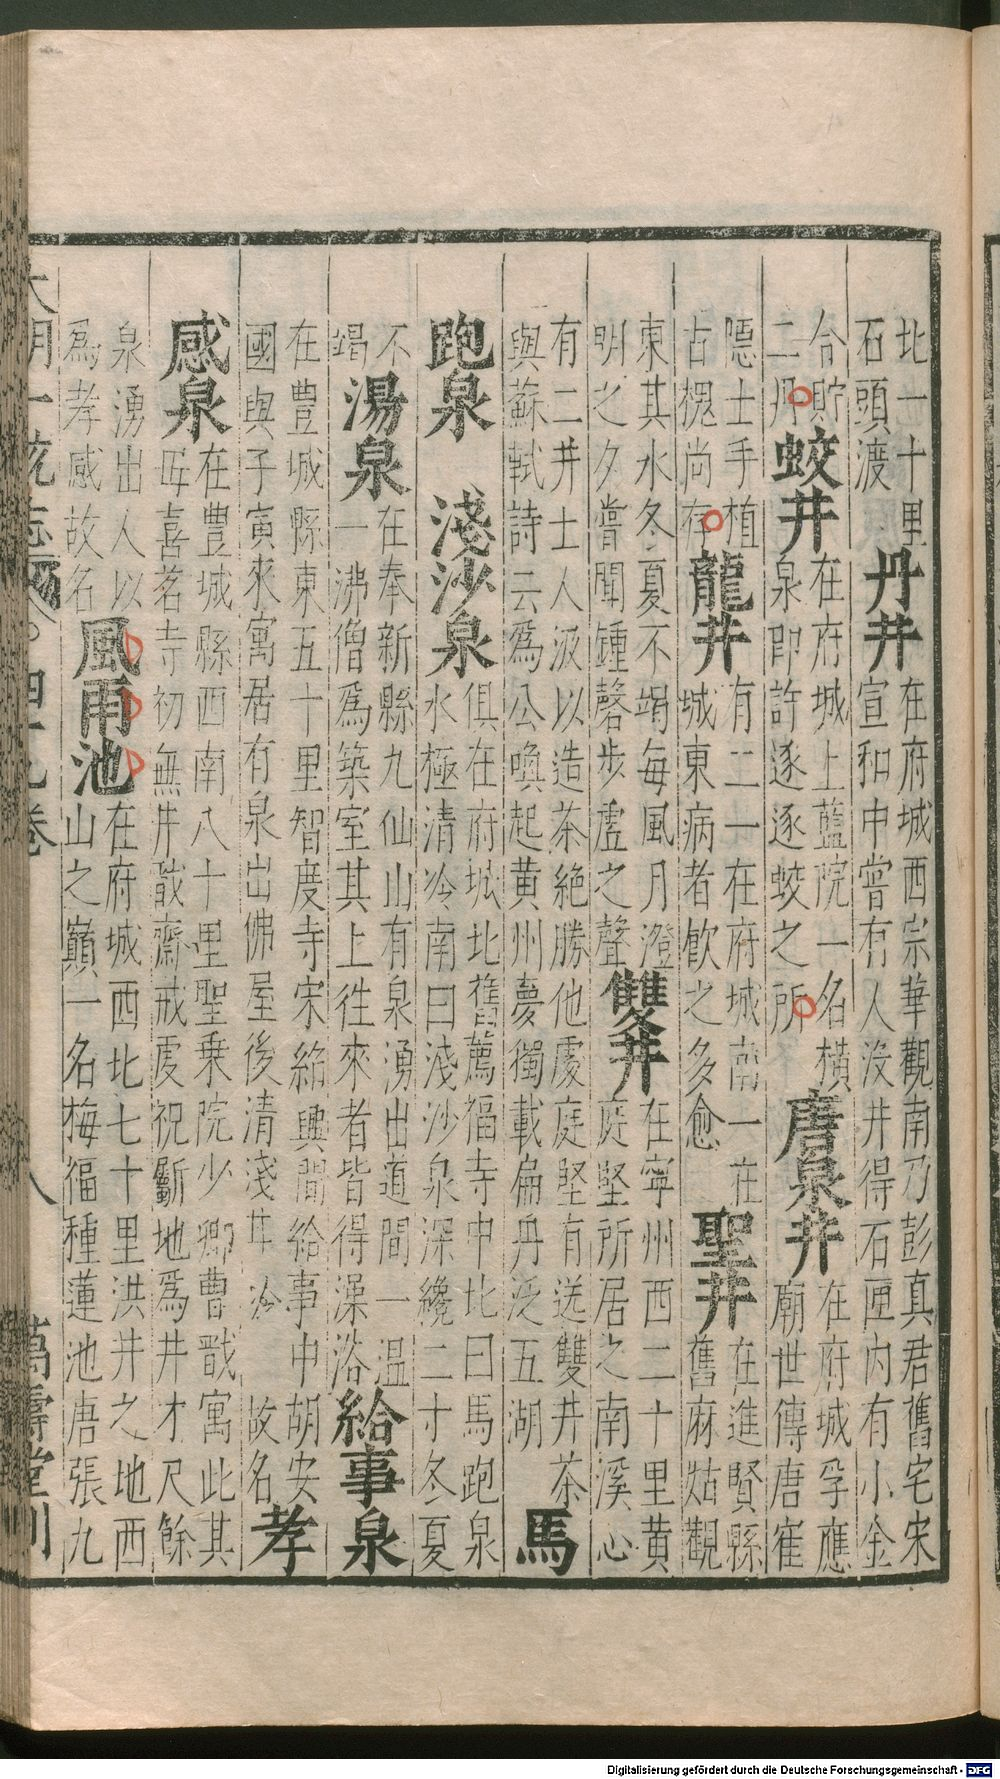 北一十里
石頭渡
丹井
在府城西宗華觀南乃彭真君舊宅宋
宣和中嘗有人沒井得石匣内有小金
合貯
二丹
蛟井
在府城上藍院一名橫
泉即許逐逐蛟之所
唐泉井
在府城孚應
廟世傳唐崔
隱士手植
古槐尚存
龍井
有二一在府城南一在
城東病者飲之多愈
聖井
在進賢縣
舊麻姑觀
東其水冬夏不竭每風月澄
明之夕嘗聞鍾磬步虛之聲
雙井
在寧州西二十里黃
庭堅所居之南溪心
有二井士人汲以造茶絶勝他處庭堅有送雙井茶
與蘇軾詩云爲公喚起黄州夢獨載扁舟泛五湖
馬
跑泉 淺沙泉
俱在府城北舊薦福寺中北曰馬跑泉
水極清冷南曰淺沙泉深纔二寸冬夏
不
竭
湯泉
在奉新縣九仙山有泉湧出道間一温
一沸僧爲築室其上徃來者皆得澡浴
給事泉
在豊城縣東五十里智度寺宋紹興間給事中胡安
國與子寅來寓居有泉出佛屋後清淺甘冷故名
孝
感泉
在豊城縣西南八十里聖乗院少卿曹戩寓此其
母喜茗寺初無井戩齋戒虔祝斸地爲井才尺餘
泉湧出人以
爲孝感故名
風雨池
在府城西北七十里洪井之地西
山之巔一名梅福種蓮池唐張九
大明一統志 四十九卷 八 萬壽堂刊
Digitalisierung gefördert durch die Deutsche Forschungsgemeinschaft - DFG